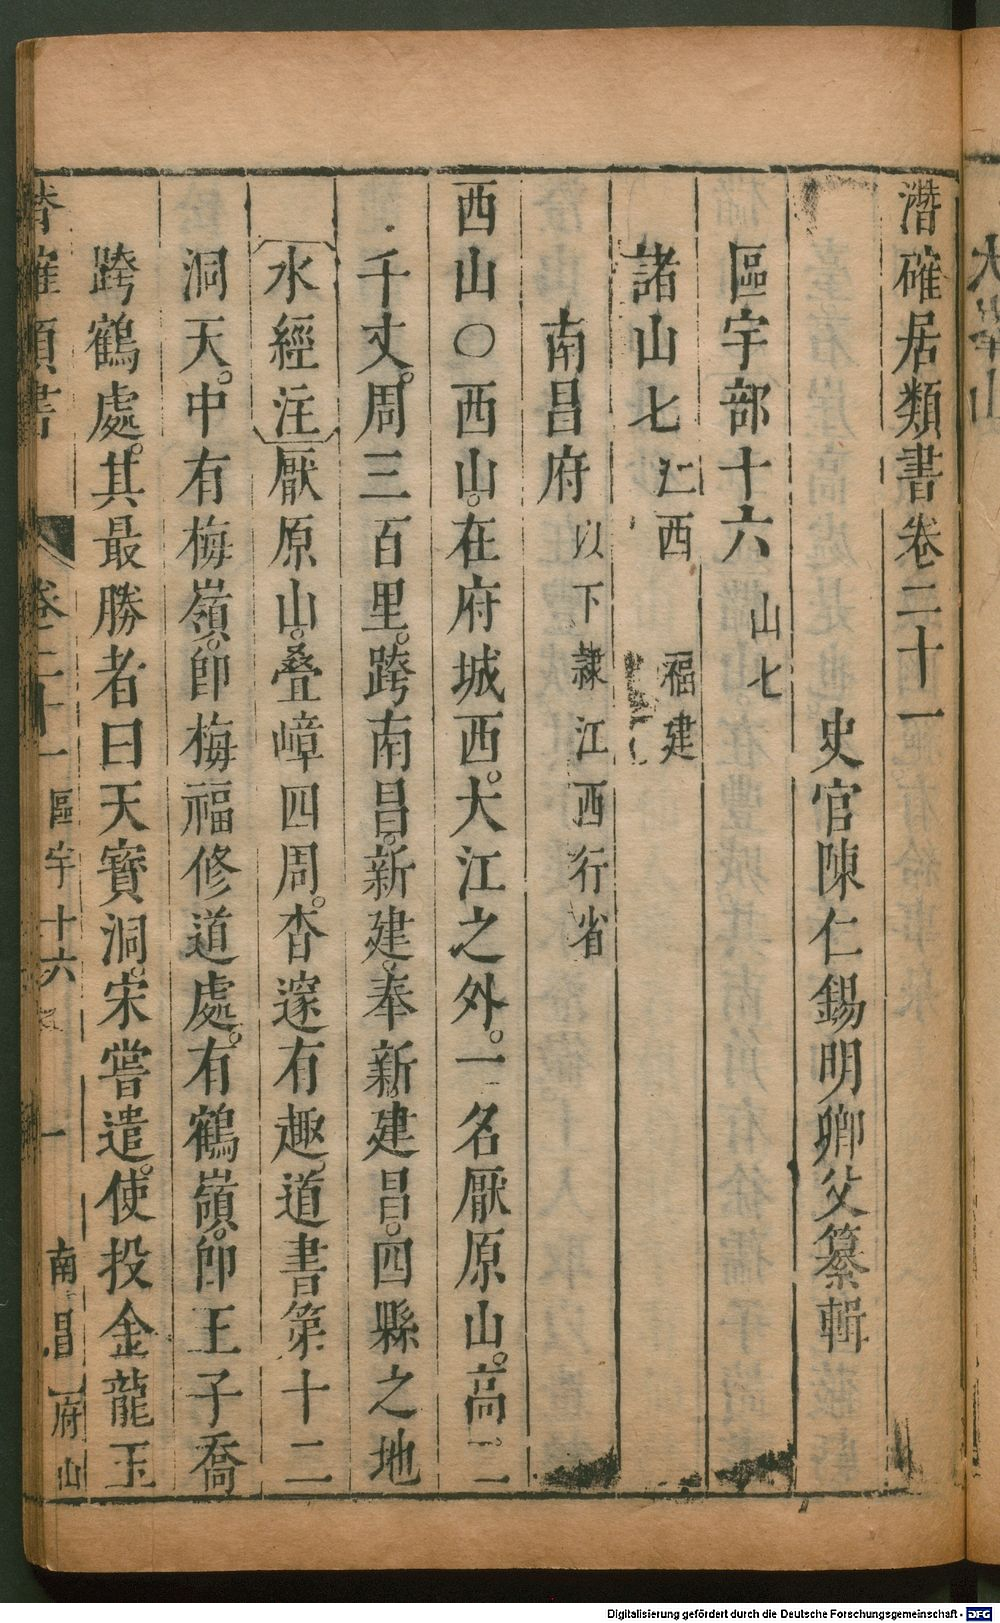 潛確居類書卷二十一
史官陳仁錫明卿父纂輯
區宇部十六 山七
諸山七 江西 福建
南昌府 以下隷江西行省
西山○西山在府城西大江之外一名厭原山高二
千丈周三百里跨南昌新建奉新建昌四縣之地
水經注厭原山叠嶂四周杳邃有趣道書第十二
洞天中有梅嶺卽梅福修道處有鶴嶺卽王子喬
跨鶴處其最勝者曰天寶洞宋嘗遣使投金龍玉
潛確類書 卷二十一 區宇十六 一 南昌府山
大 山
Digitalisierung gefördert durch die Deutsche Forschungsgemeinschaft - DFG